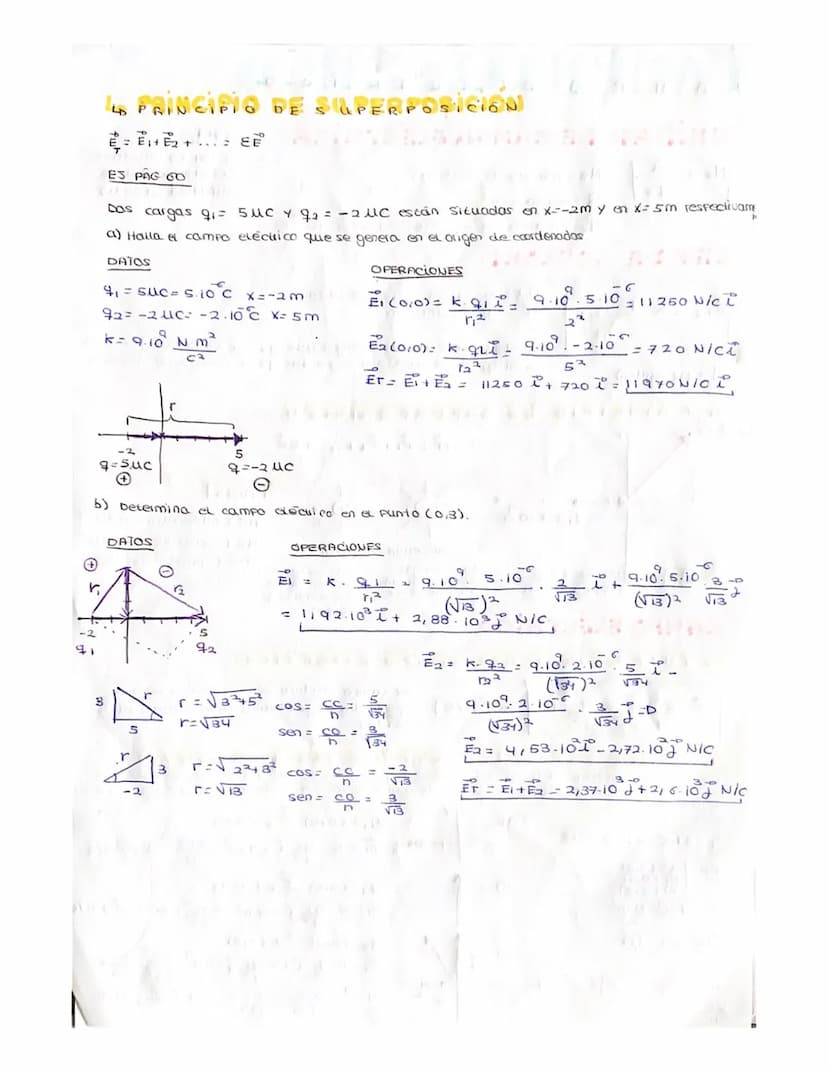 ↳ PRINCIPIO DE SUPERPOSICIÓN
E⃗_T = E⃗1 + E⃗2 + ... = ΣE⃗
EJ PÁG 60
Dos cargas q1 = 5 μC y q2 = -2 μC están situadas en x=-2m y en x=5m respectivam
a) Halla el campo eléctrico que se genera en el origen de coordenadas
DATOS
q1 = 5μC = 5·10⁻⁶C x=-2m
q2 = -2μC = -2·10⁻⁶C x=5m
k = 9·10⁹ N m²/C²
OPERACIONES
E⃗1(0,0) = k·q1 i⃗ / r1² = 9·10⁹·5·10⁻⁶ / 2² = 11250 N/C i⃗
E⃗2(0,0) = k·q2 i⃗ / r2² = 9·10⁹·-2·10⁻⁶ / 5² = 720 N/C i⃗
E⃗T = E⃗1 + E⃗2 = 11250 i⃗ + 720 i⃗ = 11970 N/C i⃗
r
-2 5
q=5μC q=-2μC
+ −
b) Determina el campo eléctrico en el punto (0,3).
DATOS
+ −
r1 r2
-2 5
q1 q2
3 r
5
r = √3²+5²
r = √34
cos = cc/h = 5/√34
sen = co/h = 3/√34
r 3
-2
r = √2²+3²
r = √13
cos = cc/h = -2/√13
sen = co/h = 3/√13
OPERACIONES
E⃗1 = k · q1/r1² = 9·10⁹ · 5·10⁻⁶ / (√13)² · 2/√13 i⃗ + 9·10⁹·5·10⁻⁶ / (√13)² 3/√13 j⃗
= 1,92·10³ i⃗ + 2,88·10³ j⃗ N/C
E⃗2 = k·q2/r2² = 9·10⁹·2·10⁻⁶ / (√34)² · 5/√34 i⃗ -
9·10⁹·2·10⁻⁶ / (√34)² · 3/√34 j⃗ =>
E⃗2 = 4,53·10² i⃗ - 2,72·10² j⃗ N/C
E⃗T = E⃗1 + E⃗2 = 2,37·10³ j⃗ + 2,6·10³ j⃗ N/C